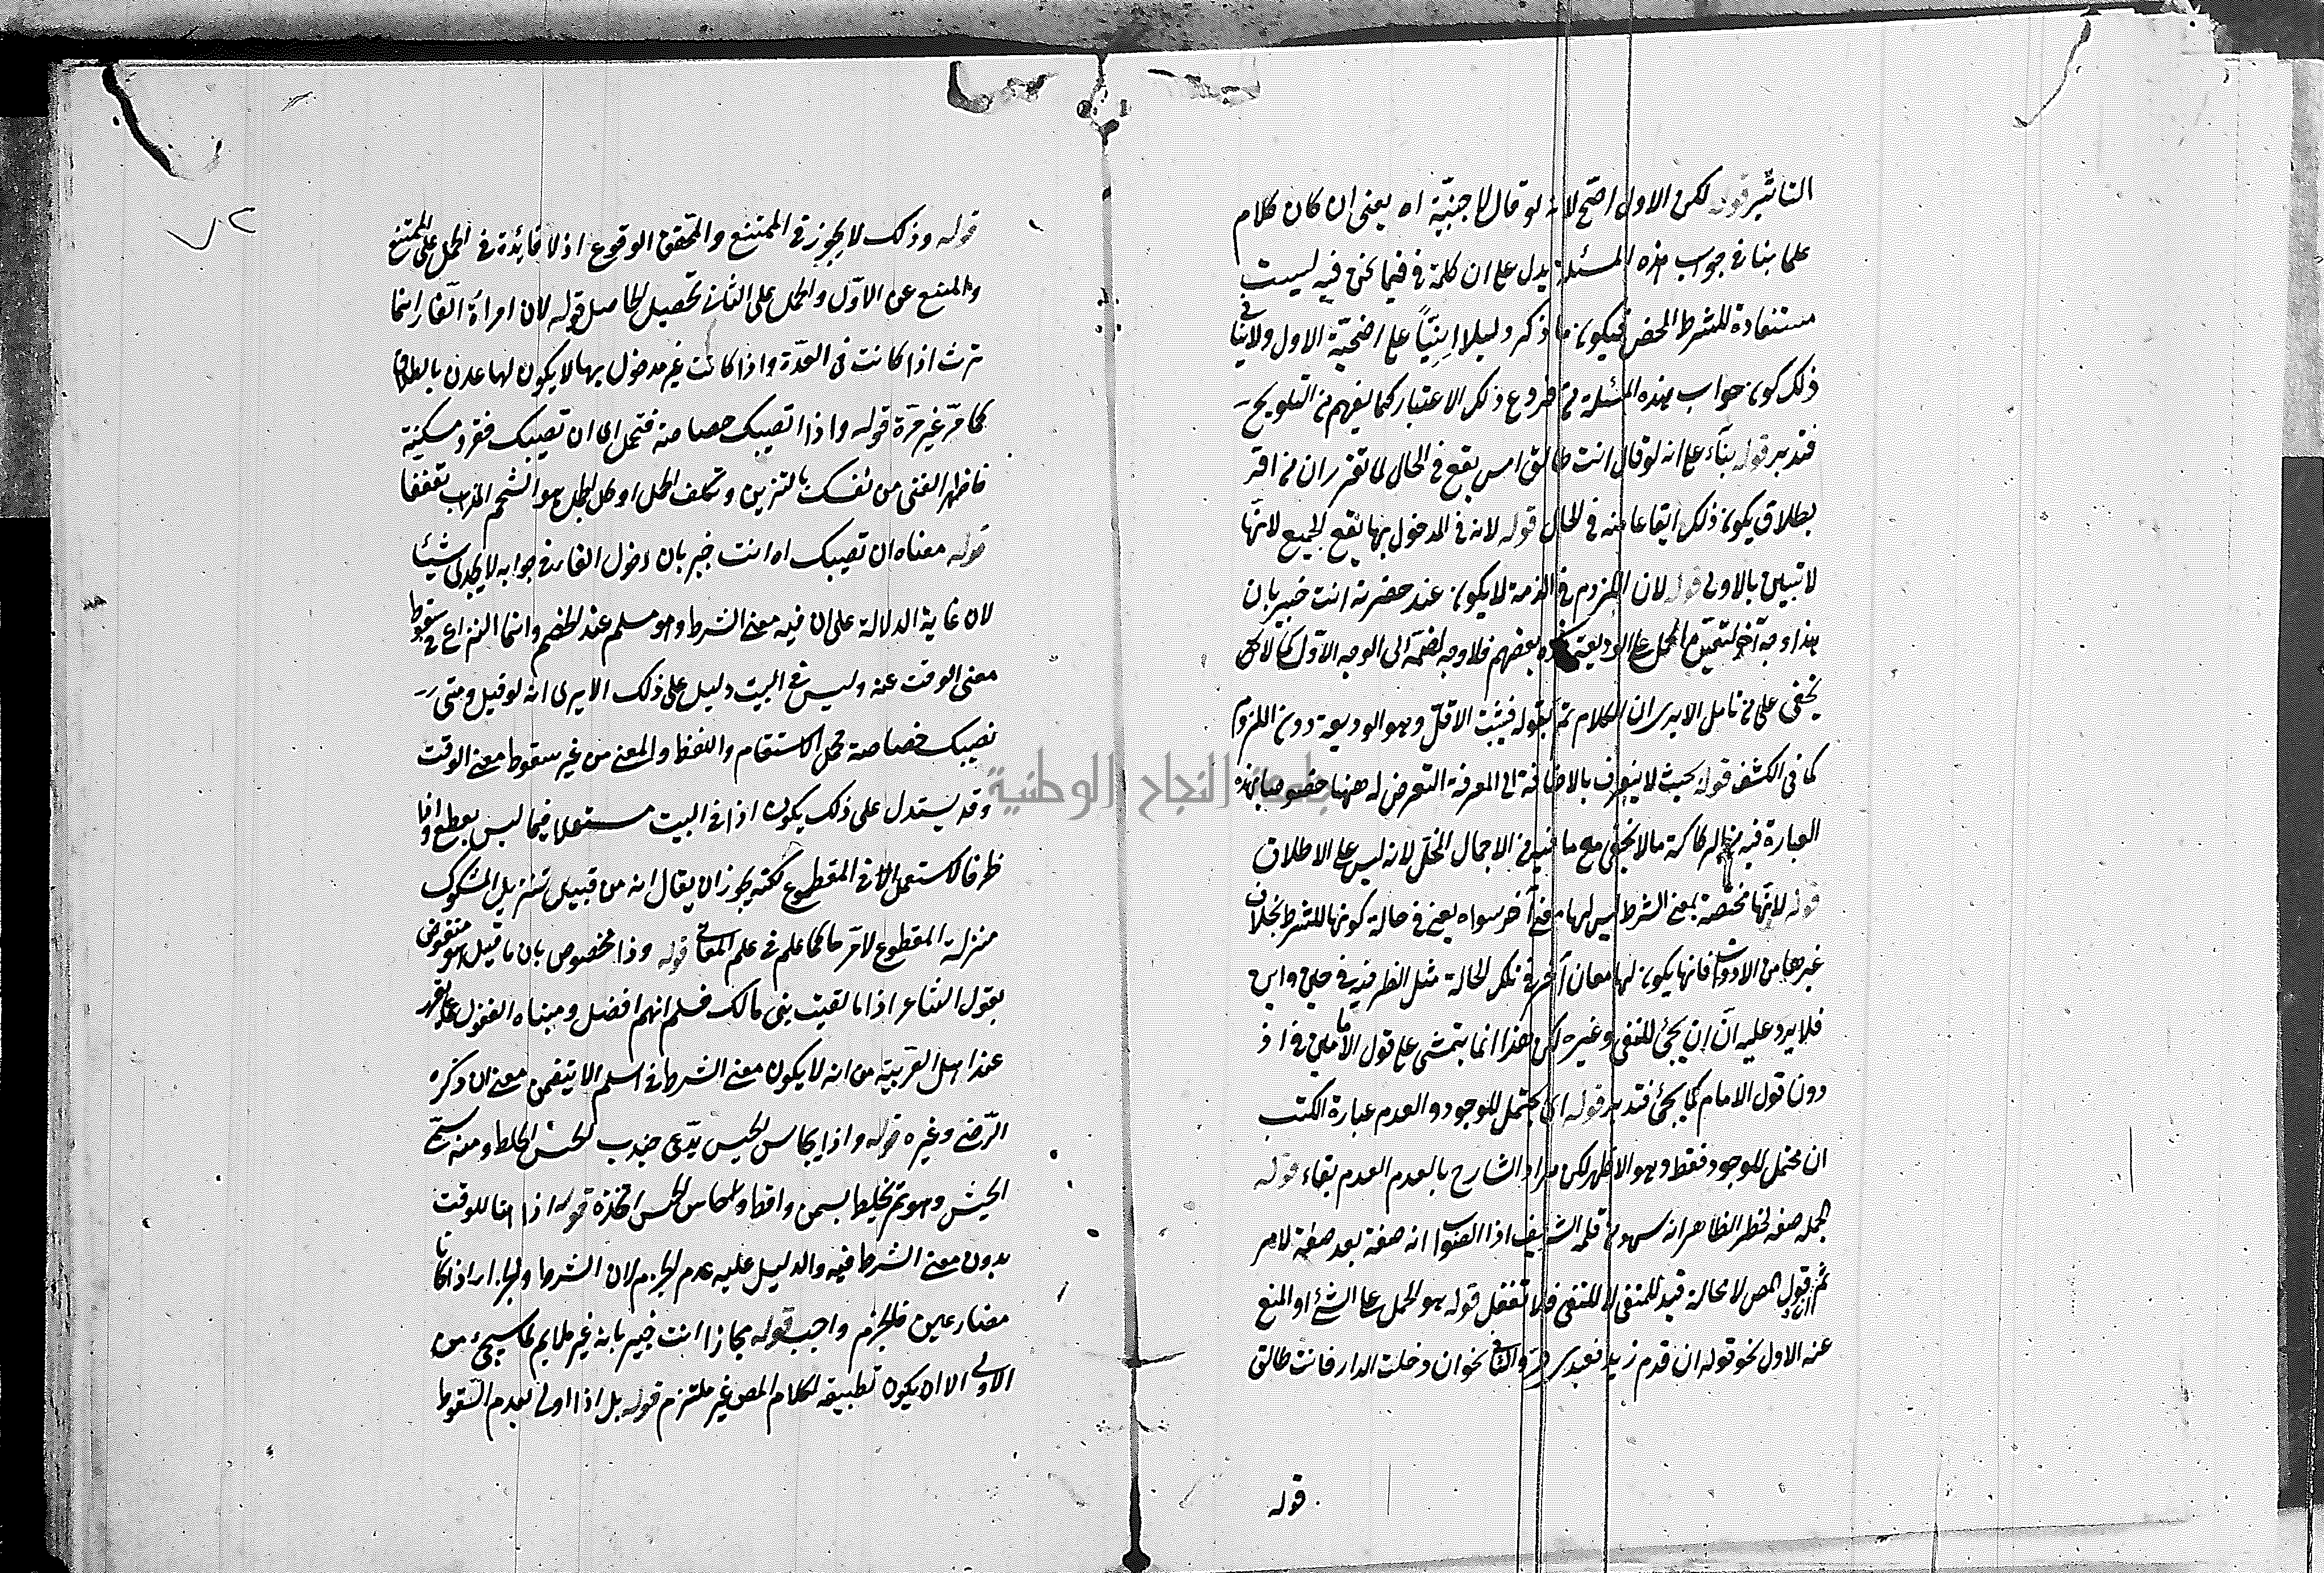 التأثير قوله لكن الاول اصح لانه لو قال لاجنبية اه يعنى ان كان كلام
علمائنا فى جواب هذه المسئلة يدل على ان كلمة فى فيما نحن فيه ليست
مستفادة للشرط المحض فيكون ما ذكر دليلا على اصحية الاول ولا ينافى
ذلك كون جواب هذه المسئلة من فروع ذلك الاعتبار كما يفهم من التلويح
فتدبر قوله بناء على انه لو قال انت طالق امس يقع فى الحال لما تقرر ان من اقر
بطلاق يكون ذلك ايقاعا منه فى الحال قوله لانه فى المدخول بها يقع الجميع لانها
لا تبين بالاولى قوله لان الملزوم فى الذمة لا يكون عند حضرته انت خبير بان
هذا وجه آخر لتعين الحمل على الوديعة ذكره بعضهم فلا وجه لضمه الى الوجه الاول كما لا
يخفى على من تأمل الا يرى ان الكلام تم بقوله فيثبت الاقل وهو الوديعة دون اللزوم
كما فى الكشف قوله بحيث لا يتعرف بالاضافة الى المعرفة التعرض له ههنا خصوصا بهذه
العبارة فيه من الركاكة ما لا يخفى مع ما فيه من الاجمال المخل لانه ليس على الاطلاق
قوله لانها مختصة بمعنى الشرط ليس لها معنى آخر سواه يعنى فى حالة كونها للشرط بخلاف
غيرها من الادوات فانها يكون لها معان آخر فى تلك الحالة مثل الظرفية فى حين واين
فلا يرد عليه ان إن يجئ للنفى وغيره لكن هذا انما يتمشى على قول الامامين فى اذا
دون قول الامام كما يجئ فتدبر قوله اى يحتمل للوجود والعدم عبارة الكتب
ان محتمل للوجود فقط وهو الاظهر لكن مراد الشارح بالعدم العدم بقاء قوله
الجملة صفة لخطر الظاهر انه سهو من قلمه الشريف اذ الصواب انه صفة بعد صفة لامر
ثم ان قول المص لا محالة قيد للمنفى لا للنفى فلا تغفل قوله هو الحمل على الشئ او المنع
عنه الاول نحو قوله ان قدم زيد فعبدى حر والثانى نحو ان دخلت الدار فانت طالق
قوله
٧٢
قوله وذلك لا يجوز فى الممتنع والمتحقق الوقوع اذ لا فائدة فى الحمل على الممتنع
والمنع عن الاول والحمل على الثانى تحصيل الحاصل قوله لان امرأة الفار انما
ترث اذا كانت فى العدة واذا كانت غير مدخول بها لا يكون لها عدة بالطلاق
كما مر غير مرة قوله واذا تصبك خصاصة فتجمل اى ان تصبك فقر ومسكنة
فاظهر الغنى من نفسك بالتزين وتكلف الجمل او كل الجميل هو الشحم المذاب تعففا
قوله معناه ان تصبك اه انت خبير بان دخول الفاء فى جوابه لا يجدى شيئا
لان غاية الدلالة على ان فيه معنى الشرط وهو مسلم عند الخصم وانما النزاع فى سقوط
معنى الوقت عنه وليس فى البيت دليل على ذلك الا يرى انه لو قيل ومتى
تصبك خصاصة تجمل لاستقام واللفظ والمعنى من غير سقوط معنى الوقت
وقد يستدل على ذلك بكون اذا فى البيت مستعملا فيما ليس بقطعى واذا
ظرفا لا تستعمل الا فى المقطوع لكنه يجوز ان يقال انه من قبيل تنزيل المشكوك
منزلة المقطوع لامر ما كما علم فى علم المعانى قوله وذا مخصوص بان ما قيل هو منقوض
بقول الشاعر اذا ما لقيت بنى مالك فسلم ايهم افضل ومبناه الغفول عما تقرر
عند اهل العربية من انه لا يكون معنى الشرط فى اسم الا بتضمن معنى ان ذكره
الرضى وغيره قوله واذا يحاس الحيس يدعى جندب الحيس الخلط ومنه سمى
الحيس وهو تمر يخلط بسمن واقط وحاس الحيس اتخذه قوله اذا انما للوقت
بدون معنى الشرط فيه والدليل عليه عدم الجزم لان الشرط والجزاء اذا كانا
مضارعين فالجزم واجب قوله مجازا انت خبير بانه غير ملايم لما سيجئ من
الاولى الا ان يكون تطبيقه لكلام المص غير ملتزم قوله بل اذا اولى لعدم السقوط
جامعة النجاح الوطنية